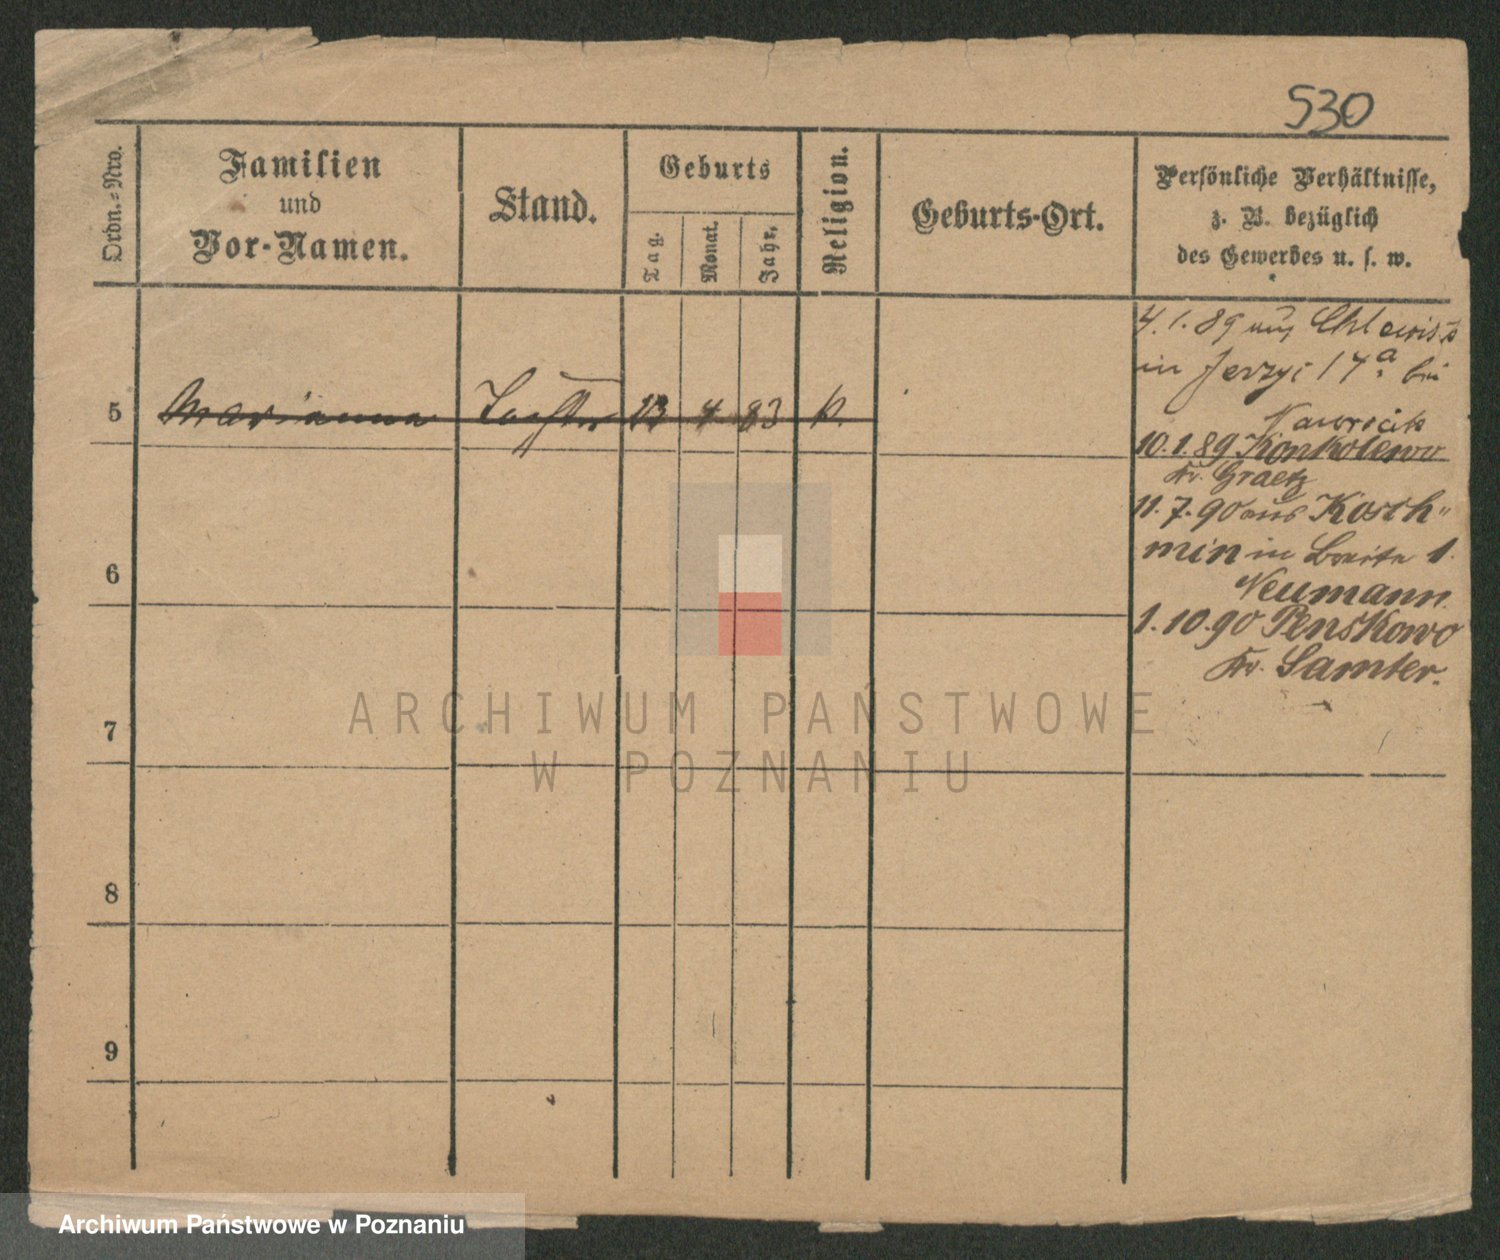 530
Ordn.-Nro.
Familien
und
Vor-Namen.
Stand.
Geburts
Tag.
Monat.
Jahr.
Religion.
Geburts-Ort.
Persönliche Verhältnisse,
z. B. bezüglich
des Gewerbes u. s. w.
5 Marianna Tochter 13 4 83 k.
4.1.89 aus
in Jerzyc 17a bei
10.1.89 Konkolewo
Kr. Graetz
11.7.90 aus Kosch-
min in Breite 1.
Neumann.
1.10.90 Penskowo
Kr. Samter.
6
7
8
9
ARCHIWUM PAŃSTWOWE
W POZNANIU
Archiwum Państwowe w Poznaniu